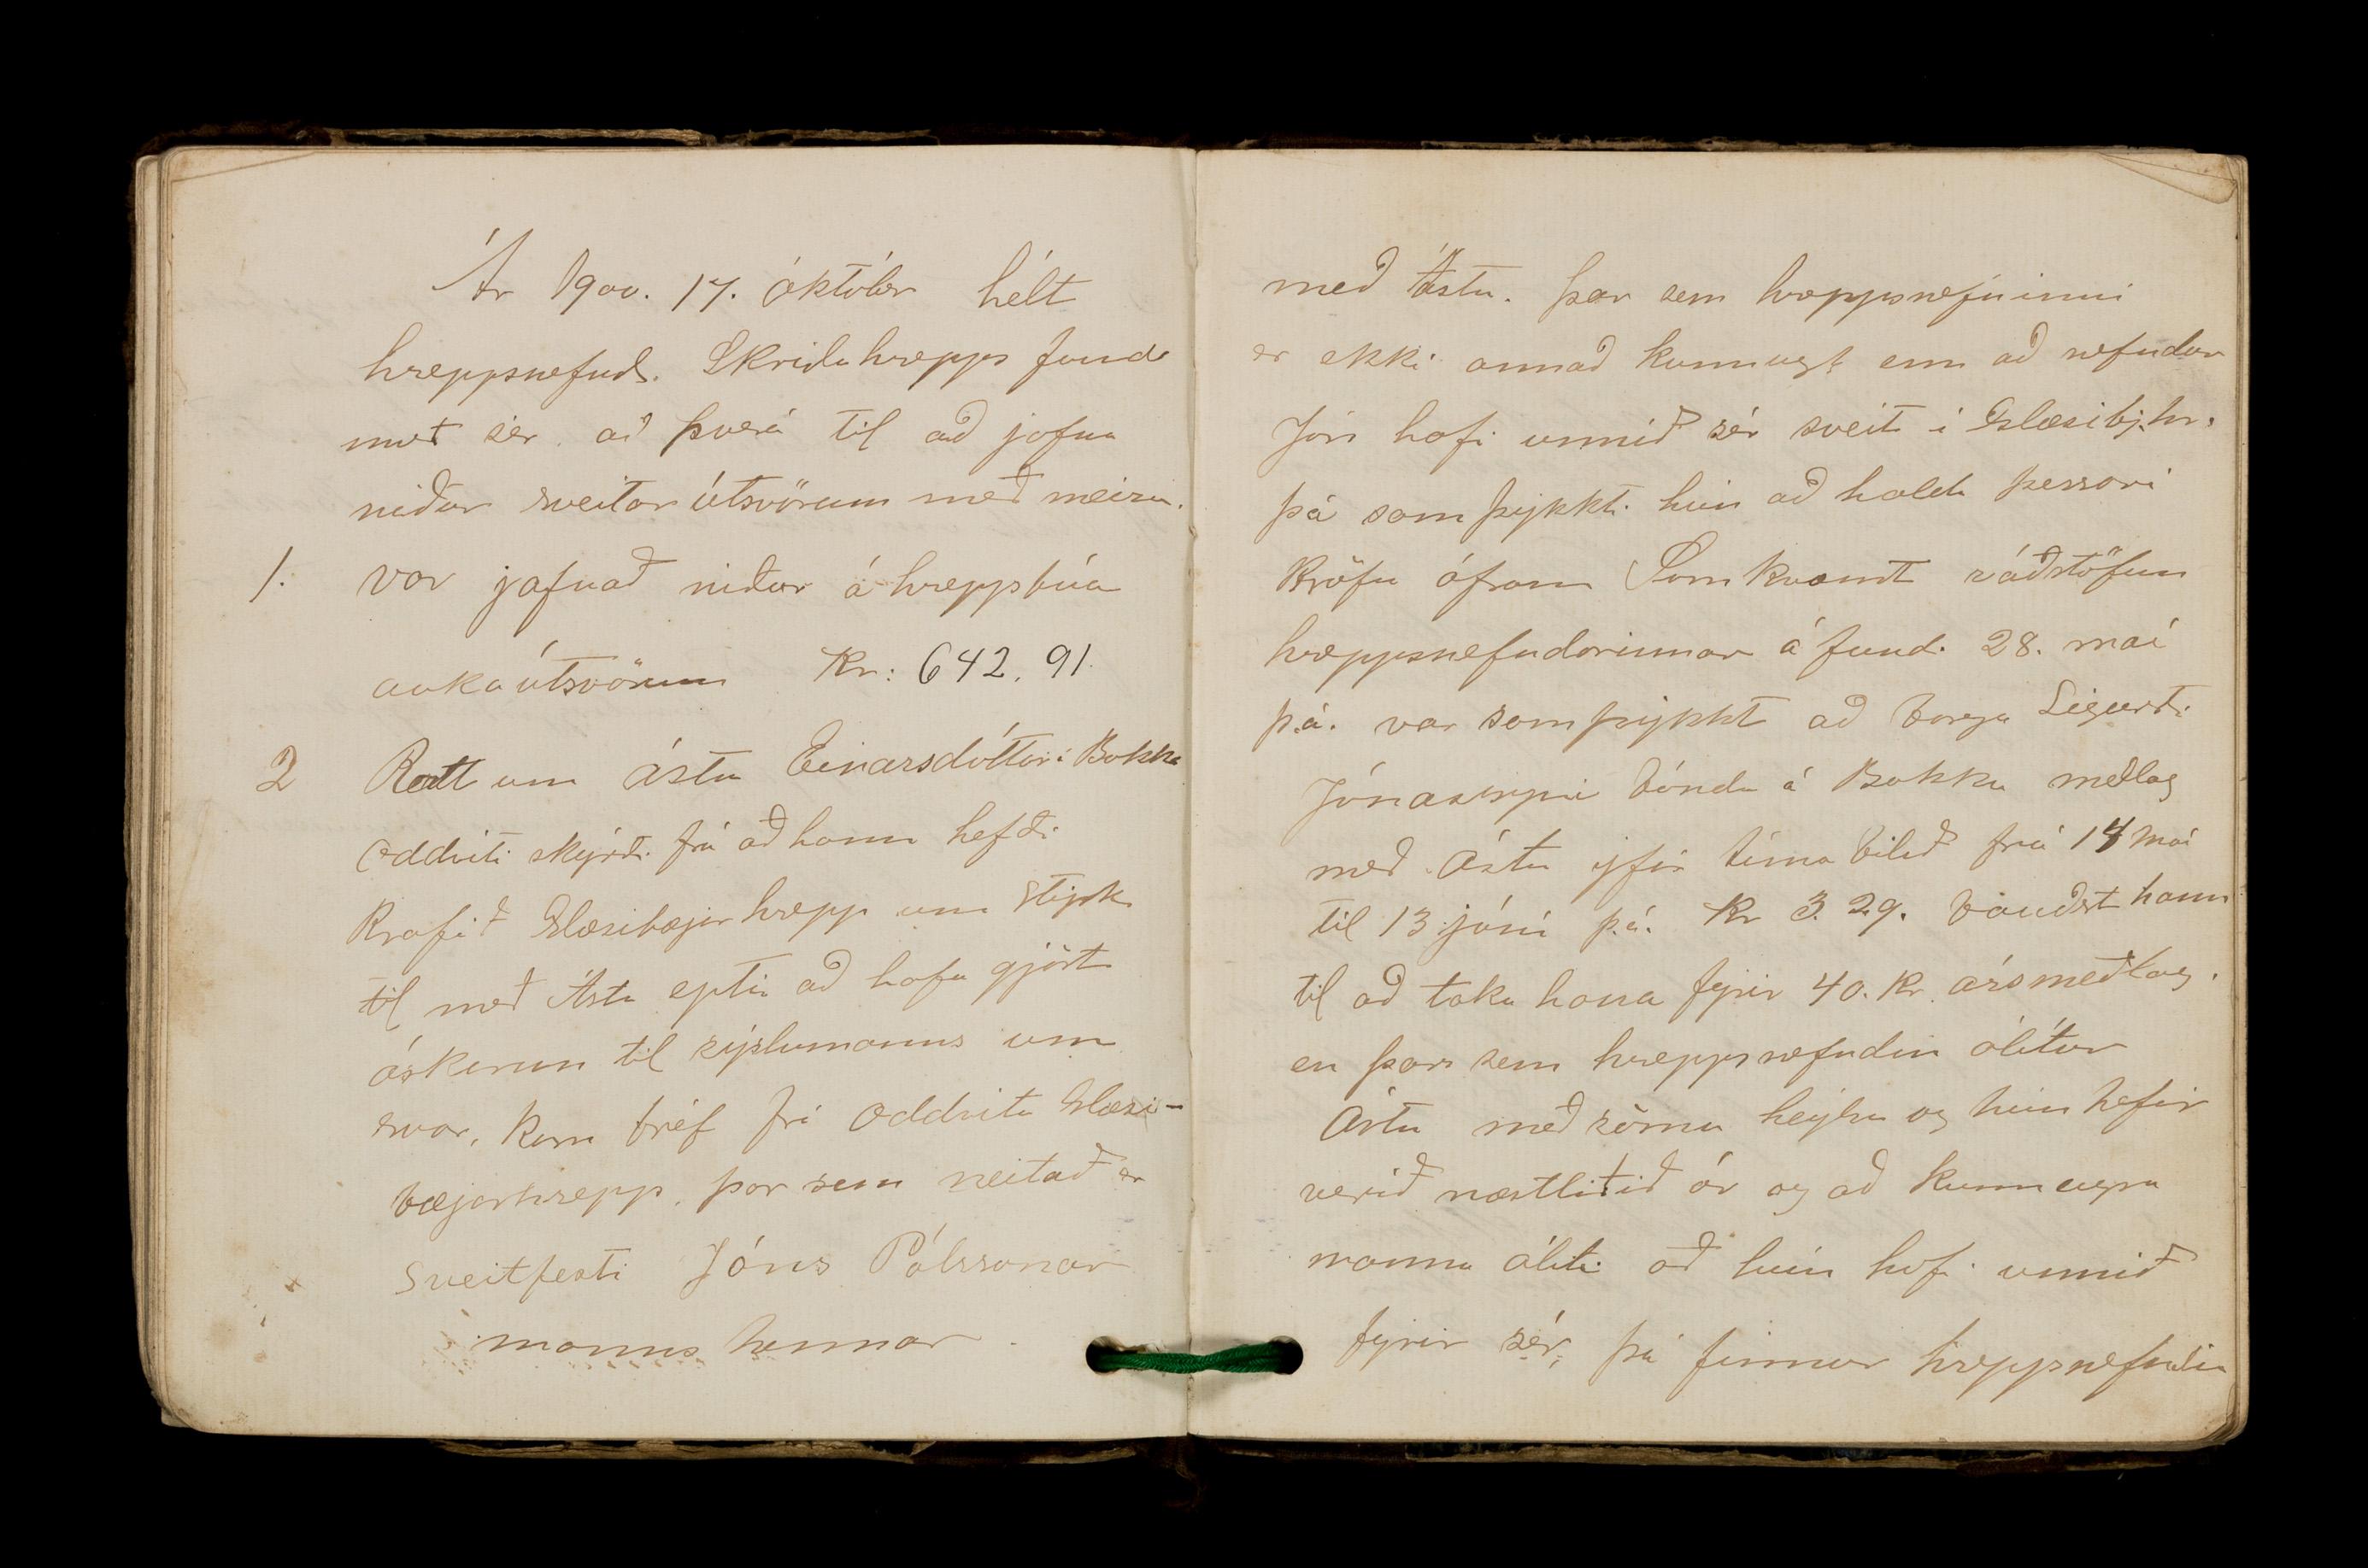 Ár 1900. 17. óktóber hélt
hreppsnefnd. Skriðuhrepps fund
með sér að Þverá til að jafna
niður sveitar útsvörum með meiru.
1. Var jafnað niður á hreppsbúa
aukaútsvörum Kr: 642.91
2 Rætt um Ástu Einarsdóttur í Bakka
Oddviti skýrði frá að hann hefði
krafið Glæsibæjar hrepp um styrk
til með Ástu eptir að hafa gjört
áskorun til sýslumanns um
svar, kom bréf frá oddvita Glæsi-
bæjarhrepp. þar sem neitað er
sveitfesti Jóns Pálssonar
manns hennar
með Ástu. Þar sem hreppsnefninni
er ekki annað kunnugt enn að nefndur
Jón hafi unnið sér sveit í Glæsibj.hr.
þá samþykkti hún að halda þessari
kröfu áfram Samkvæmt ráðstöfun
hreppsnefndarinnar á fundi 28. maí
þ.á. var samþykkt að borga Sigurði
Jónassyni bónda á Bakka meðlag
með Ástu yfir tímabilið frá 14 maí
til 13 júní þ.á. Kr 3.29. bauðst hann
til að taka hana fyrir 40. kr. ársmeðlag.
en þar sem hreppsnefndin álítur
Ástu með sömu heylsu og hún hefir
verið næstliðið ár og að kunnugra
manna áliti að hún hafi unnið
fyrir sér, þá finnur hreppsnefndin